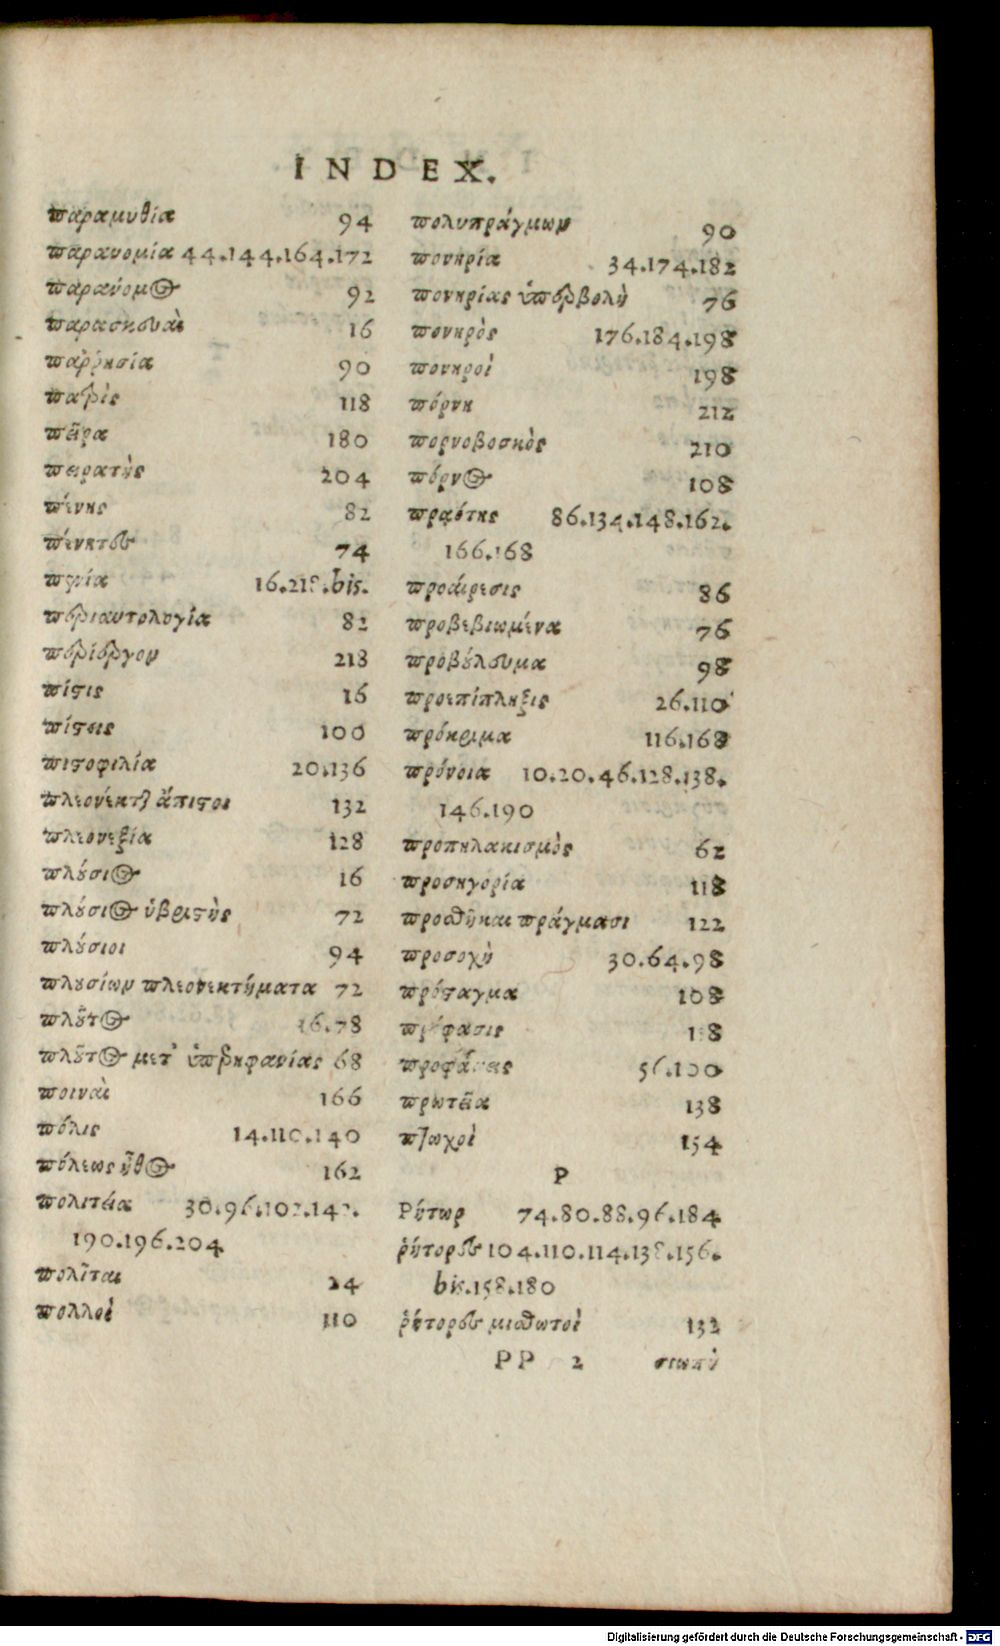 INDEX.
παραμυθία 94
παρανομία 44.144.164.172
παράνομος 92
παρασκευαὶ 16
παῤῥησία 90
πατρὶς 118
πεῖρα 180
πειρατὴς 204
πένης 82
πένητες 74
πενία bis.
περιαυτολογία 82
περίεργον 218
πίστις 16
πίστεις 100
πιστοφιλία 20.136
πλεονέκται ἄπιστοι 132
πλεονεξία 128
πλούσιος 16
πλούσιος ὑβριστὴς 72
πλούσιοι 94
πλουσίων πλεονεκτήματα 72
πλοῦτος 16.78
πλοῦτος μετ' ὑπερηφανίας 68
ποιναὶ 166
πόλις 14.110.140
πόλεως ἦθος 162
πολιτεία 30.96.102.142.
190.196.204
πολῖται 24
πολλοὶ 110
πολυπράγμων 90
πονηρία 34.174.182
πονηρίας ὑπερβολὴ 76
πονηρὸς 176.184.198
πονηροὶ 198
πόρνη 212
πορνοβοσκὸς 210
πόρνος 108
πραότης 86.134.148.162.
166.168
προαίρεσις 86
προβεβιωμένα 76
προβούλευμα 98
προεπίπληξις 26.110
πρόκριμα 116.168
πρόνοια 10.20.46.128.138.
146.190
προπηλακισμὸς 62
προσηγορία 118
προσθῆκαι πράγμασι 122
προσοχὴ 30.64.98
πρόσταγμα 108
πρόφασις
προφάσεις 56.100
πρωτεῖα 138
πτωχοὶ 154
Ρ
Ρήτωρ 74.80.88.96.184
ῥήτορες 104.110.114.138.156.
bis.158.180
ῥήτορες μισθωτοὶ 132
PP 2 σιωπὴ
Digitalisierung gefördert durch die Deutsche Forschungsgemeinschaft - DFG